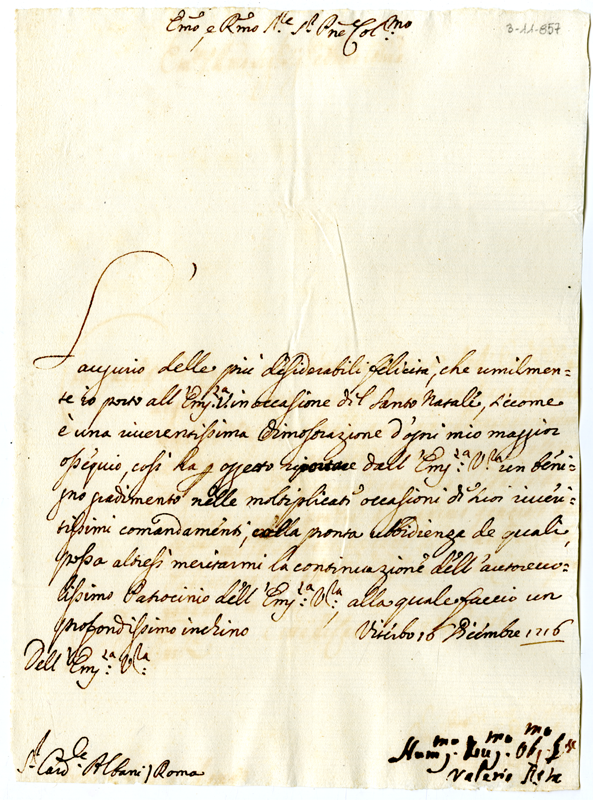 Emo, e Rmo Sre Sr Pne Colmo
3-11-857
L'
augurio delle più desiderabili felicità, che umilmen=
te io porto all'Emza Vra in occasione del Santo Natale, siccome
è una riverentissima dimostrazione d'ogni mio maggior
ossequio, così ha p oggetto riportare dall'Emza Vra un beni=
gno gradimento nelle moltiplicati occasioni de suoi riveri=
tissimi comandamenti, colla pronta ubbidienza de quali,
possa altresì meritarmi la continuazione dell'autorevo=
lissimo Patrocinio dell'Emza Vra, alla quale faccio un
profondissimo inchino Viterbo 16 Dicembre 1716
Dell'Emza Vra
Sr Cardle Albani) Roma
Valerio